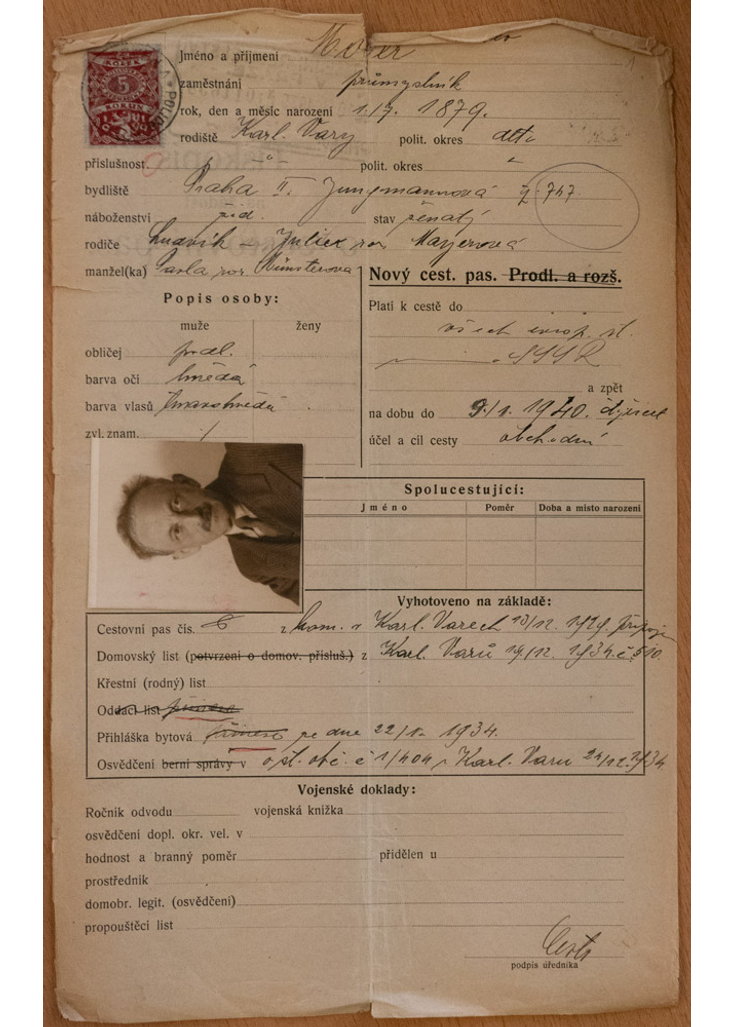 KOLEK
5
KORUN
Jméno a příjmení Moser
zaměstnání průmyslník
rok, den a měsíc narození 1879.
rodiště Karl. Vary polit. okres dtto
příslušnost " polit. okres "
bydliště Praha II. Jungmannová 747
náboženství žid. stav ženatý
rodiče Ludvík Mayerová
manžel(ka)
Nový cest. pas. Prodl. a rozš.
Popis osoby:
muže ženy
obličej podl.
barva očí hnědá
barva vlasů tmavohnědá
zvl. znam. /
Platí k cestě do
všech evrop. st.
SSSR
a zpět
na dobu do 9/1. 1940.
účel a cíl cesty obchodní
Spolucestující:
Jméno Poměr Doba a místo narození
Vyhotoveno na základě:
Cestovní pas čís. Karl. Varech 1929
Domovský list (potvrzení o domov. přísluš.) z Karl. Varů 19/12. 1934 č. 510
Křestní (rodný) list
Oddací list
Přihláška bytová ze dne 1934.
Osvědčení berní správy v Karl. Varů
Vojenské doklady:
Ročník odvodu vojenská knížka
osvědčení dopl. okr. vel. v
hodnost a branný poměr přidělen u
prostředník
domobr. legit. (osvědčení)
propouštěcí list
podpis úředníka